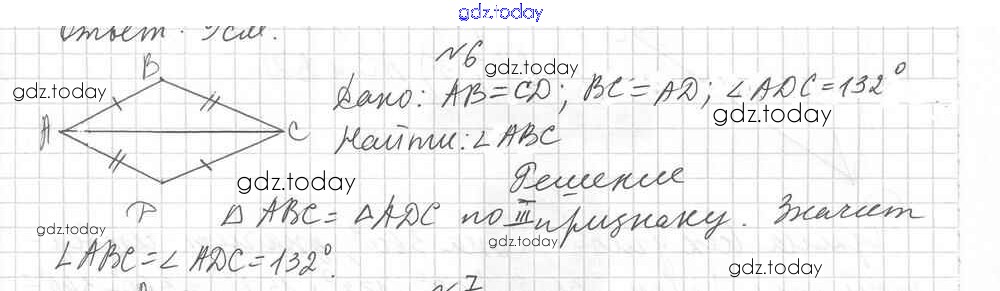 gdz.today
Ответ: 9см.
№6
gdz.today
gdz.today
B
A
C
Дано: AB=CD; BC=AD; ∠ADC=132°
gdz.today
Найти: ∠ABC
gdz.today
Решение
△ABC=△ADC по III признаку. Значит
gdz.today
gdz.today
∠ABC=∠ADC=132°.
gdz.today
№7